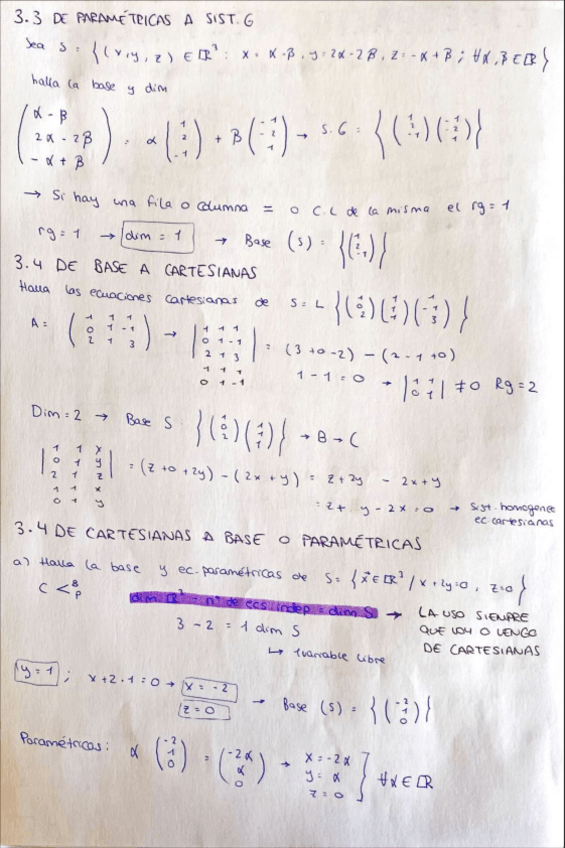 3.3 DE PARAMÉTRICAS A SIST. G
Sea S = {(x,y,z) ∈ ℝ³ : x = α-β, y=2α-2β, z=-α+β ; ∀α,β∈ℝ}
halla la base y dim
(α-β, 2α-2β, -α+β) = α (1, 2, -1) + β (-1, -2, 1) → S.G = {(1, 2, -1) (-1, -2, 1)}
→ Si hay una fila o columna = o C.L de la misma el rg=1
rg=1 → dim=1 → Base (S) = {(1, 2, -1)}
3.4 DE BASE A CARTESIANAS
Halla las ecuaciones cartesianas de S=L {(1, 0, 2) (1, 1, 1) (1, -1, 3)}
A= (1 1 1 / 0 1 -1 / 2 1 3) → |1 1 1 / 0 1 -1 / 2 1 3 / 1 1 1 / 0 1 -1| = (3+0-2) - (2-1+0)
1-1=0 → |1 1 / 0 1| ≠0 Rg=2
Dim=2 → Base S {(1, 0, 2) (1, 1, 1)} → B → C
|1 1 x / 0 1 y / 2 1 z / 1 1 x / 0 1 y| = (z+0+2y) - (2x+y) = z+2y - 2x+y
= z+ y-2x=0 → Sist. homogeneo
ec cartesianas
3.4 DE CARTESIANAS A BASE O PARAMÉTRICAS
a) Halla la base y ec. paramétricas de S= {x⃗∈ℝ³ / x+2y=0, z=0}
C < B P
dim. ℝ³ - nº de ecs. indep = dim S → LA USO SIEMPRE
QUE VOY O VENGO
DE CARTESIANAS
3-2 = 1 dim S
↳ 1 variable libre
y=1 ; x+2·1=0 → x=-2
z=0 → Base (S) = {(-2, 1, 0)}
Paramétricas: α (-2, 1, 0) = (-2α, α, 0) → x=-2α
y=α
z=0 } ∀α∈ℝ